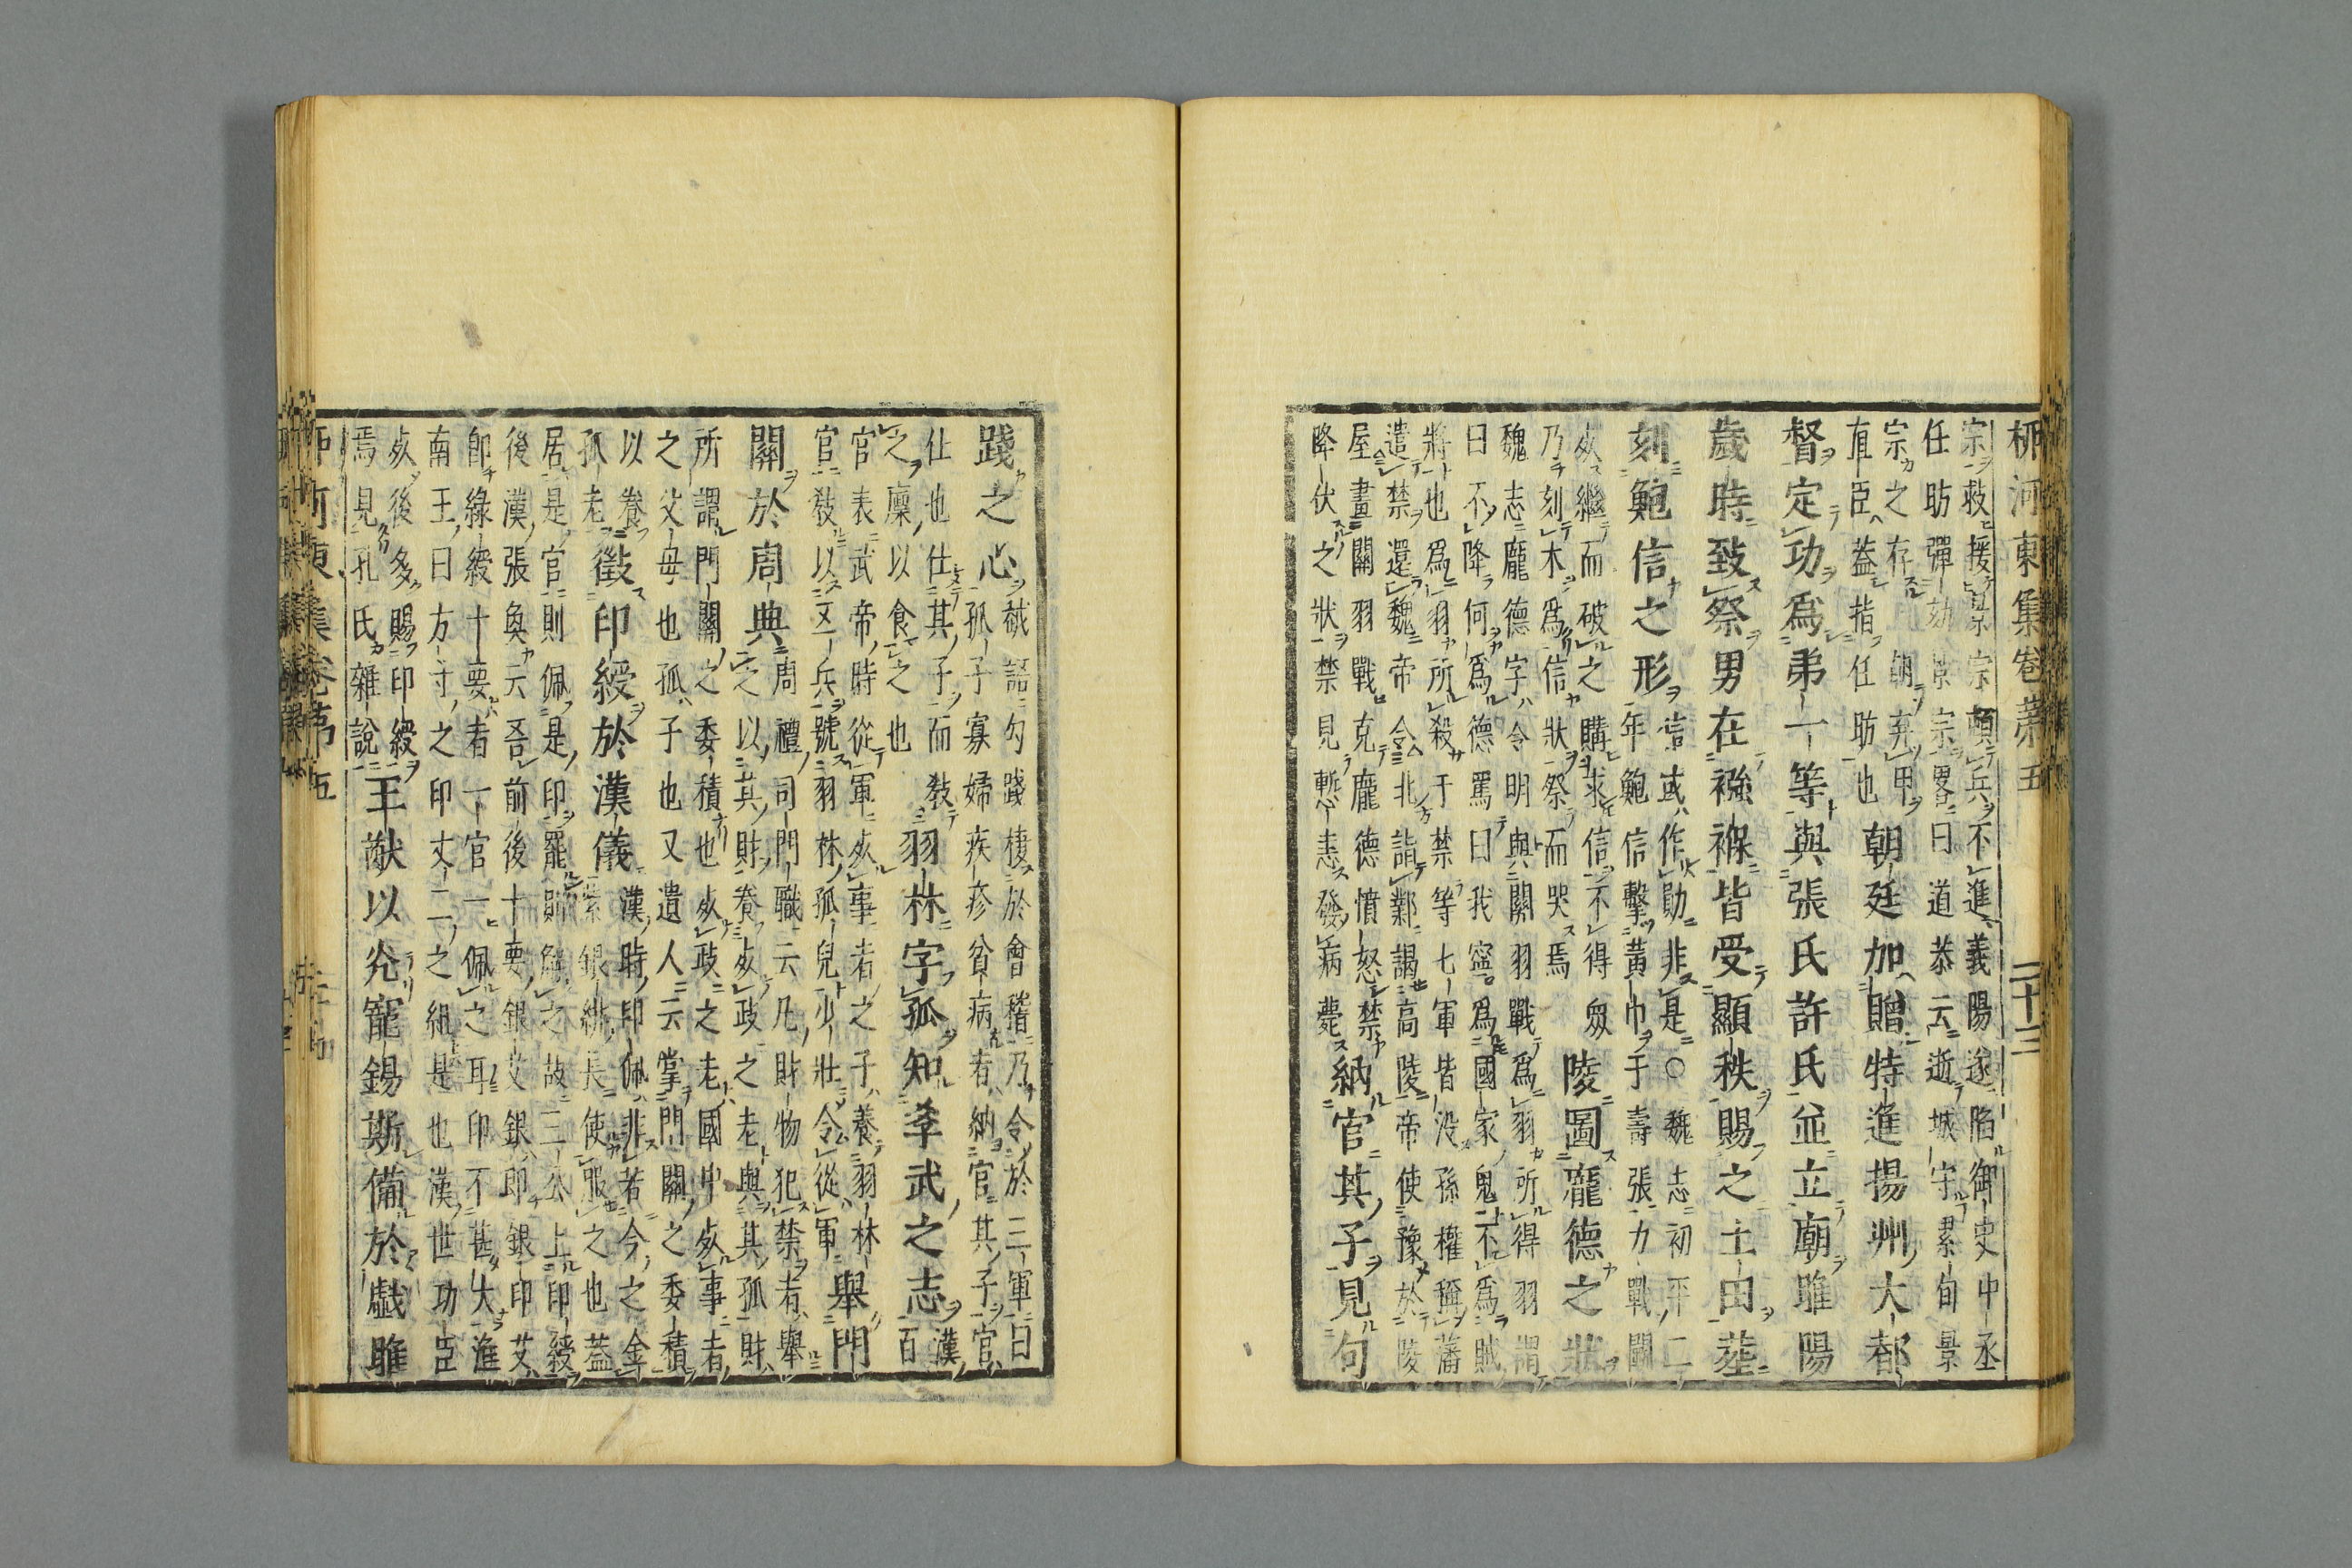 柳河東集卷第五　二十三
宗救援景宗頓兵不進義陽遂陷御史中丞
任昉彈劾景宗畧曰道恭云逝城守累旬景
宗之存朝弃甲
直臣蓋指任昉也
朝廷加贈特進揚州大都
督定功爲第一等與張氏許氏並立廟睢陽
歲時致祭男在襁褓皆受顯秩賜之土田葬
刻鮑信之形
信或作勛非是○魏志初平二
年鮑信擊黃巾于壽張力戰鬪
死繼而破之購求信不得衆
乃刻木爲信狀祭而哭焉
陵圖龐德之狀
魏志龐德字令明與關羽戰爲羽所得羽謂
曰不降何爲德罵曰我寧爲國家鬼不爲賊
將也爲羽所殺于禁等七軍皆没孫權稱藩
遣禁還魏帝令北詣鄴謁高陵帝使豫於陵
屋畫關羽戰克龐德憤怒禁
降伏之狀禁見慙恚發病薨
納官其子見句
踐之心
越語勾踐棲於會稽乃令於三軍曰
孤子寡婦疾疹貧病者納官其子官
仕也仕其子而敎
之廩以食之也
羽林字孤知孝武之志
漢百
官表武帝時從軍死事者之子養羽林
官敎以五兵號羽林孤兒少壯令從軍
舉門
關於周典
周禮司門職云凡財物犯禁者舉
之以其財養死政之老與其孤財
所謂門關之委積也死政之老國中死事者
之父母也孤子也又遺人云掌門關之委積
以養
孤老
徵印綬於漢儀
漢時印佩非若今之金
紫銀緋長使服之也蓋
居是官則佩是印罷則解之故三公上印綬
後漢張奐云吾前後十要銀艾銀即銀印艾
即綠綬十要者一官一佩之耳印不甚大淮
南王曰方寸之印丈二之組是也漢世功臣
死後多賜印綬
焉見孔氏雜說
王猷以光寵錫斯備於戲睢
柳河東集卷第五